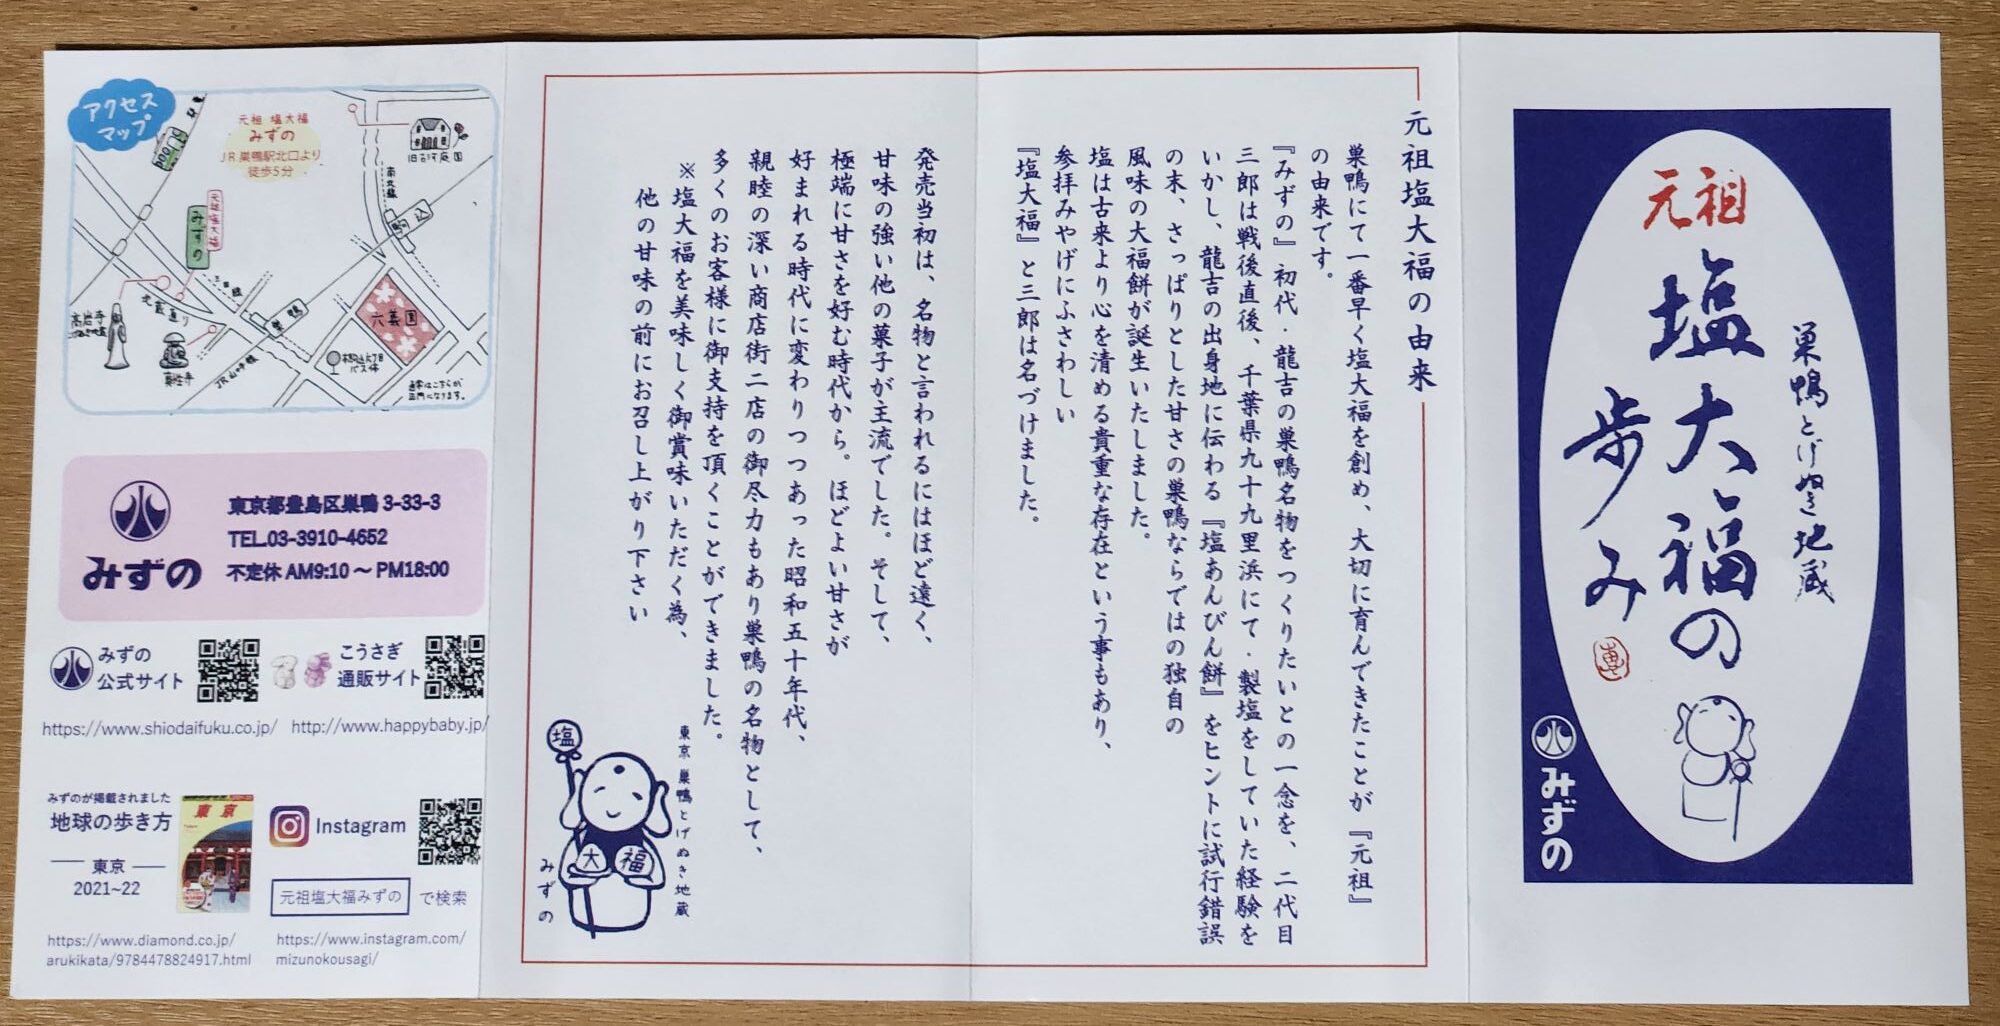 巣鴨とげぬき地蔵
元祖
塩大福の
歩み
みずの
元祖塩大福の由来
巣鴨にて一番早く塩大福を創め、大切に育んできたことが『元祖』
の由来です。
『みずの』初代・龍吉の巣鴨名物をつくりたいとの一念を、二代目
三郎は戦後直後、千葉県九十九里浜にて・製塩をしていた経験を
いかし、龍吉の出身地に伝わる『塩あんびん餅』をヒントに試行錯誤
の末、さっぱりとした甘さの巣鴨ならではの独自の
風味の大福餅が誕生いたしました。
塩は古来より心を清める貴重な存在という事もあり、
参拝みやげにふさわしい
『塩大福』と三郎は名づけました。
発売当初は、名物と言われるにはほど遠く、
甘味の強い他の菓子が主流でした。そして、
極端に甘さを好む時代から。ほどよい甘さが
好まれる時代に変わりつつあった昭和五十年代、
親睦の深い商店街二店の御尽力もあり巣鴨の名物として、
多くのお客様に御支持を頂くことができました。
※塩大福を美味しく御賞味いただく為、
他の甘味の前にお召し上がり下さい
東京 巣鴨とげぬき地蔵
塩
大
福
みずの
アクセス
マップ
元祖 塩大福
みずの
JR巣鴨駅北口より
徒歩5分
旧古河庭園
南北線
駒込
元祖塩大福
みずの
巣鴨
高岩寺
真性寺
JR山の手線
六義園
バス停
正門になります。
みずの
東京都豊島区巣鴨 3-33-3
TEL.03-3910-4652
不定休 AM9:10 ～ PM18:00
みずの
公式サイト
https://www.shiodaifuku.co.jp/
こうさぎ
通販サイト
http://www.happybaby.jp/
みずのが掲載されました
地球の歩き方
東京
2021~22
東京
https://www.diamond.co.jp/
arukikata/9784478824917.html
Instagram
元祖塩大福みずの で検索
https://www.instagram.com/
mizunokousagi/